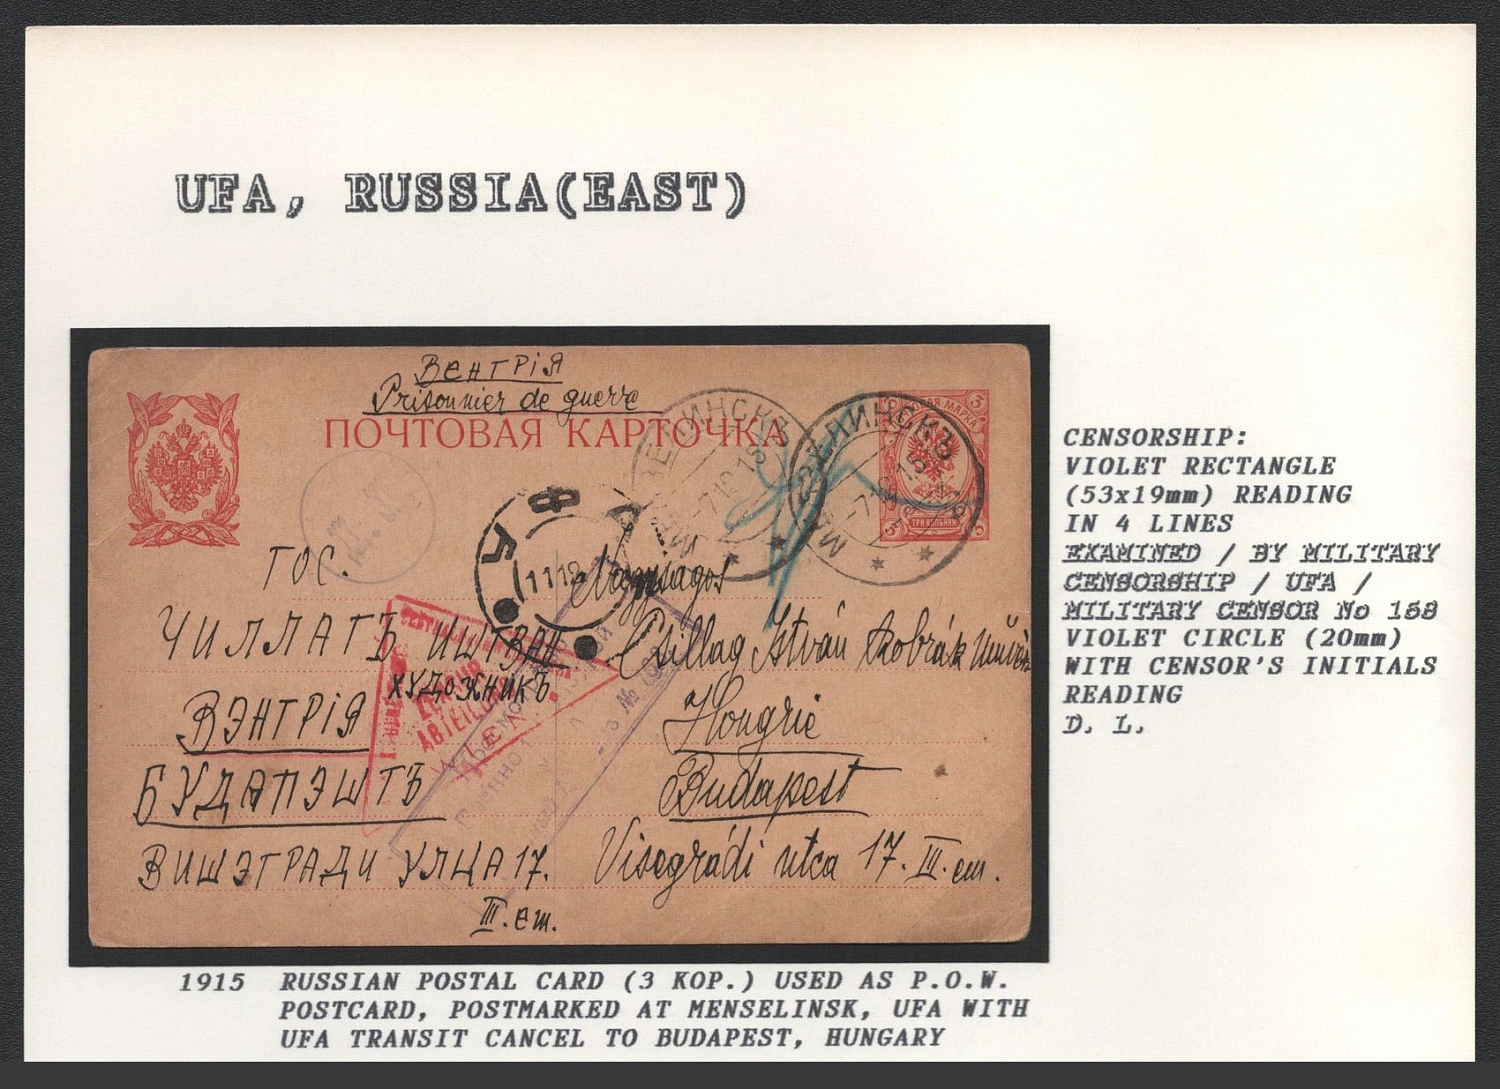 UFA, RUSSIA(EAST)
Венгрія
Prisonnier de guerre
ПОЧТОВАЯ КАРТОЧКА
МАРКА
3
ТРИ КОПѢЙКИ
УФА
11 12
ГОС.
Nagyságos
ЧИЛЛАГЪ ИШТВАН
Csillag István
ХУДОЖНИКЪ
ВЭНГРІЯ
Hongrie
БУДАПЭШТЪ
Budapest
ВИШЭГРАДИ УЛЦА 17.
Visegrádi utca 17. III. em.
III. ем.
CENSORSHIP:
VIOLET RECTANGLE
(53x19mm) READING
IN 4 LINES
EXAMINED / BY MILITARY
CENSORSHIP / UFA /
MILITARY CENSOR No 158
VIOLET CIRCLE (20mm)
WITH CENSOR'S INITIALS
READING
D. L.
1915 RUSSIAN POSTAL CARD (3 KOP.) USED AS P.O.W.
POSTCARD, POSTMARKED AT MENSELINSK, UFA WITH
UFA TRANSIT CANCEL TO BUDAPEST, HUNGARY